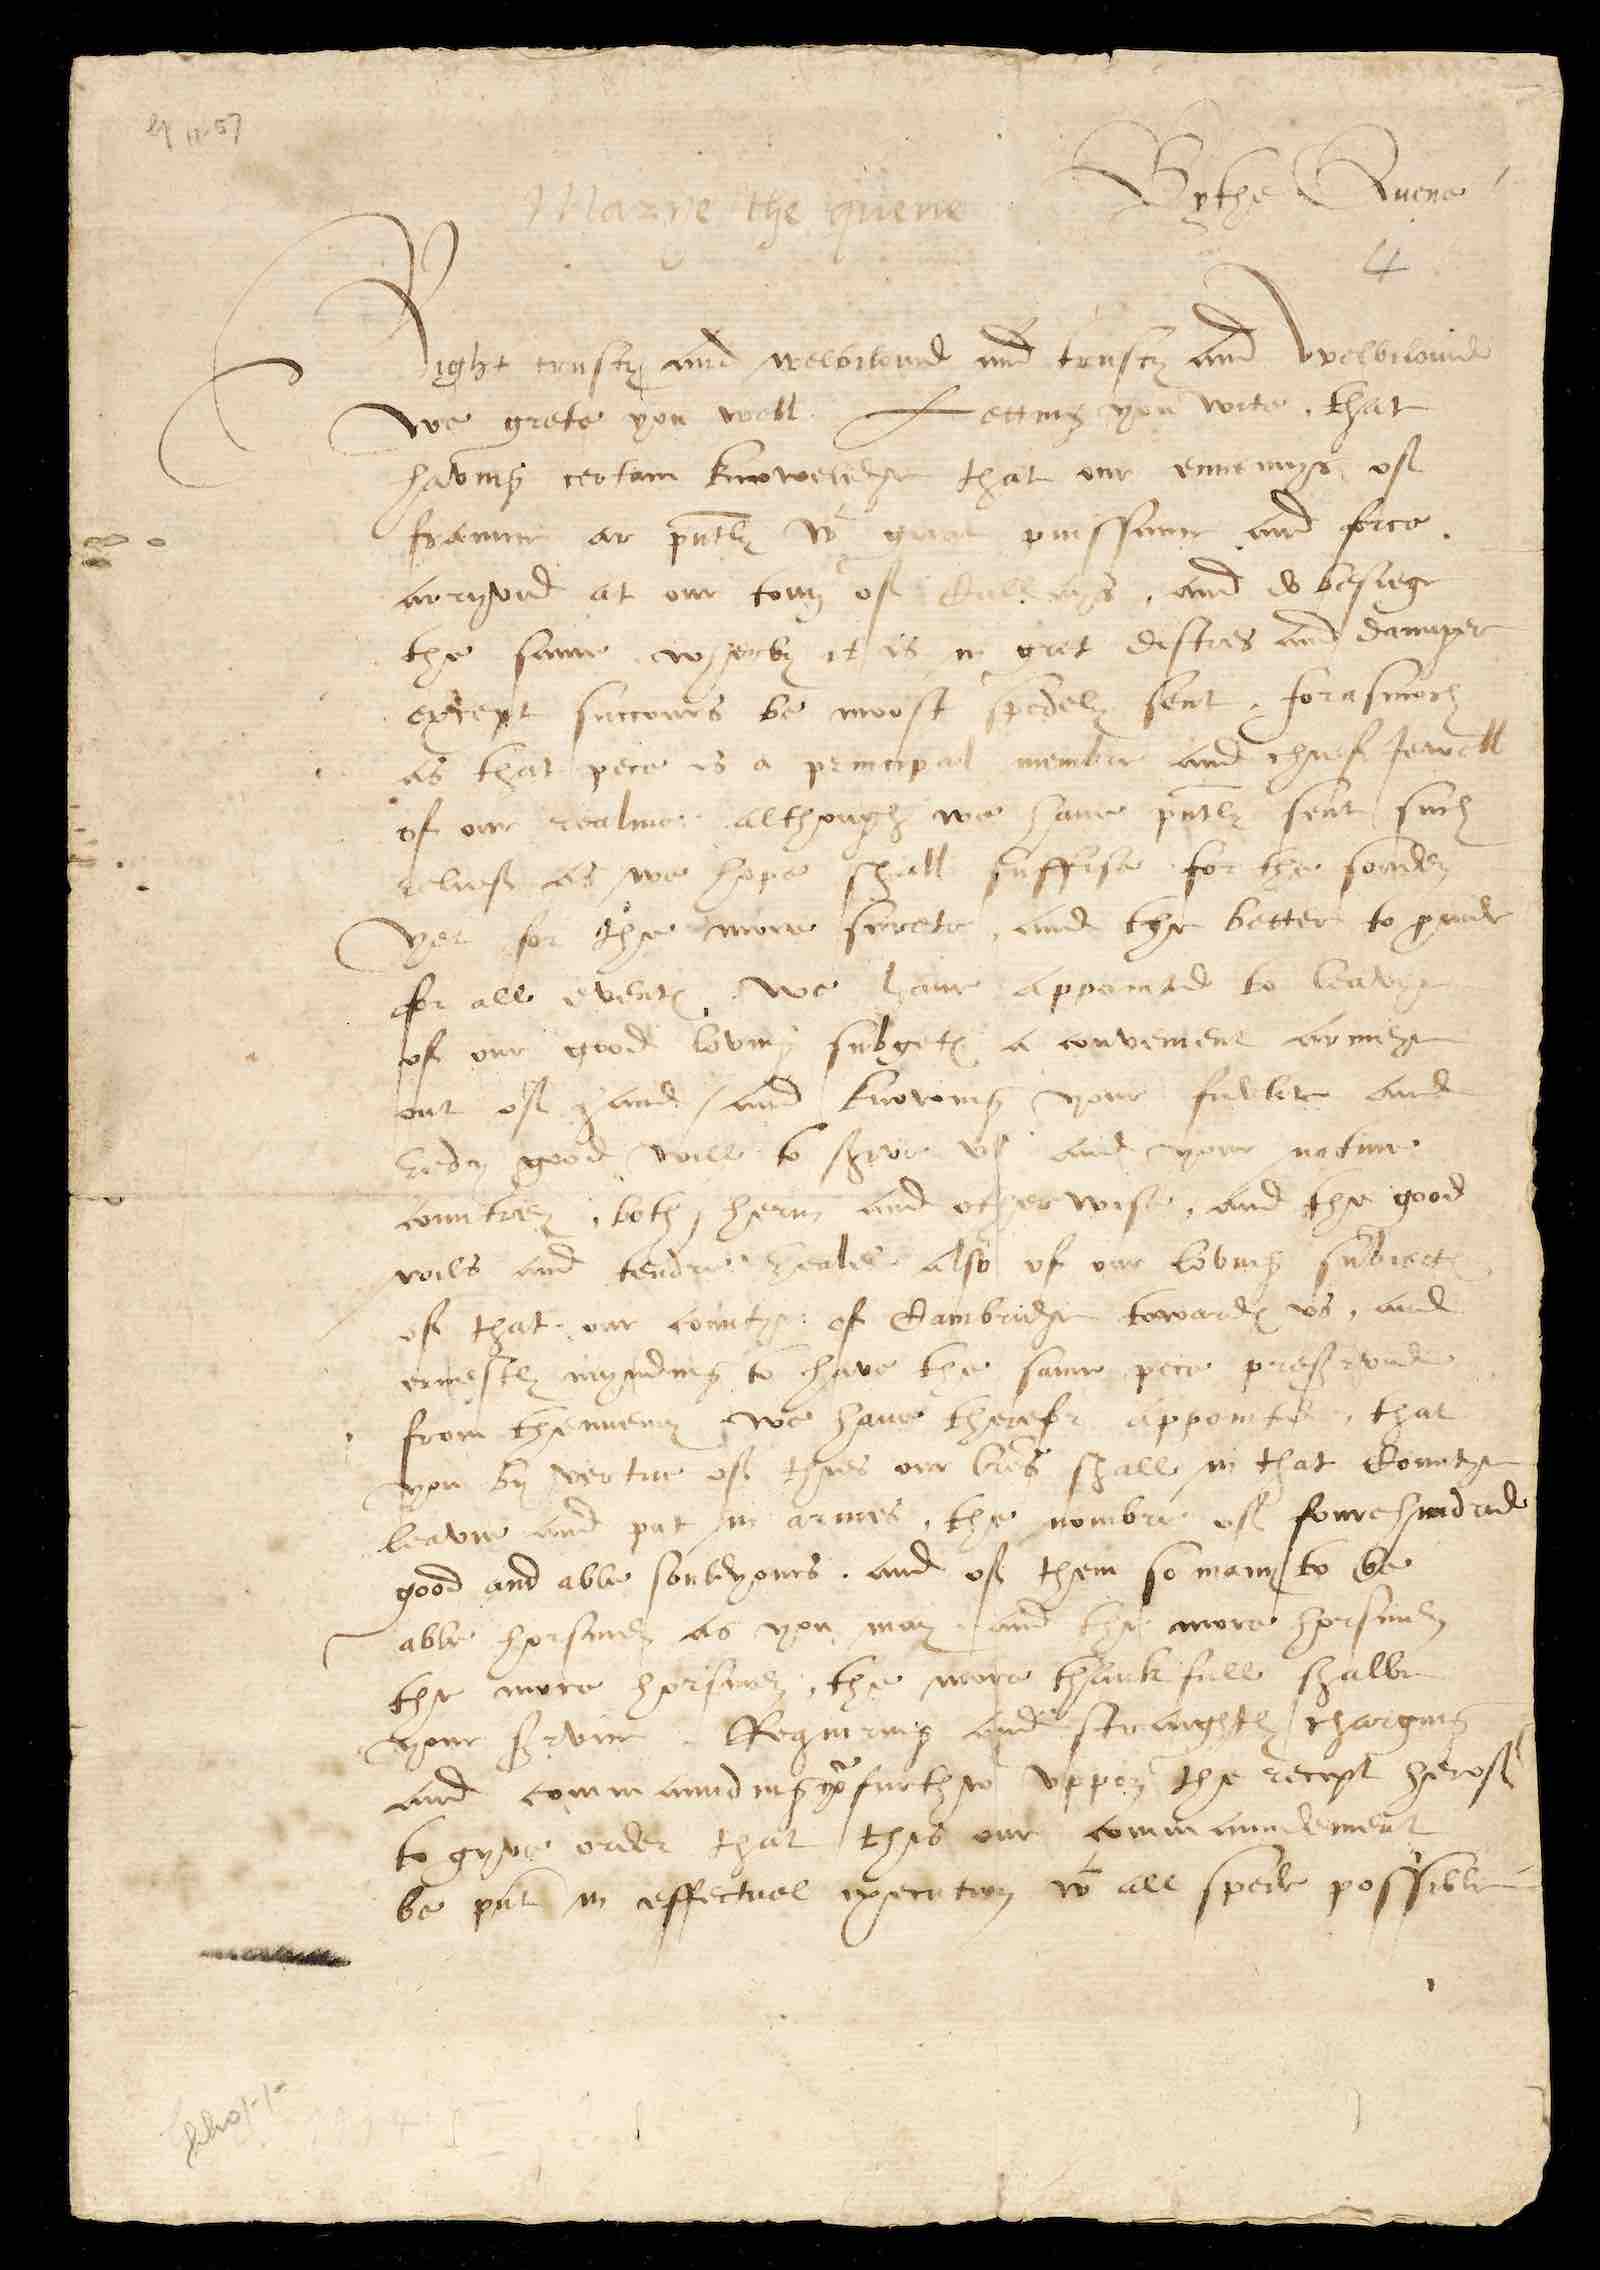 By the Quene
Marye the quene
4
Right trusty and welbiloued and trusty and welbiloued
we grete you well. Letting you wite, that
having certain knoweledge that our ennemyes of
fraunce ar pntly wt great puissaunce and force.
arryved at our town of Callays, and do besiege
the same, wherby it is in gret distres and daunger
except succours be moost spedely sent, forasmoch
as that pece is a principal membre and chief Jewell
of our realme. although we have pntly sent such
relief as we hope shall suffise for the soden
yet for the more surete, and the better to pvide
for all eventes, we have appointed to leavye
of our good loving subgetes a convenient armeye
out of hand / and knowing your fidelite and
redy good will to serve us and your native
countrey, both herin and otherwise, and the good
wils and tendre zeales also of our loving subiectes
of that our countye of Cambridge towardes us, and
ernestly mynding to have the same pece preserved
from thennemy we have therefor appointed, that
you by vertue of thies our lres shall in that Countye
leavie and put in armes, the nombre of fourehundred
good and able souldyours. and of them so many to be
able horsmen as you may. and the more horsmen
the more horsmen, the more thankfull shalbe
your service. Requiring and straightly charging
and commaunding you further uppon the receipt herof
to gyve order that this our commaundement
be put in effectuel execution wt all spede possible